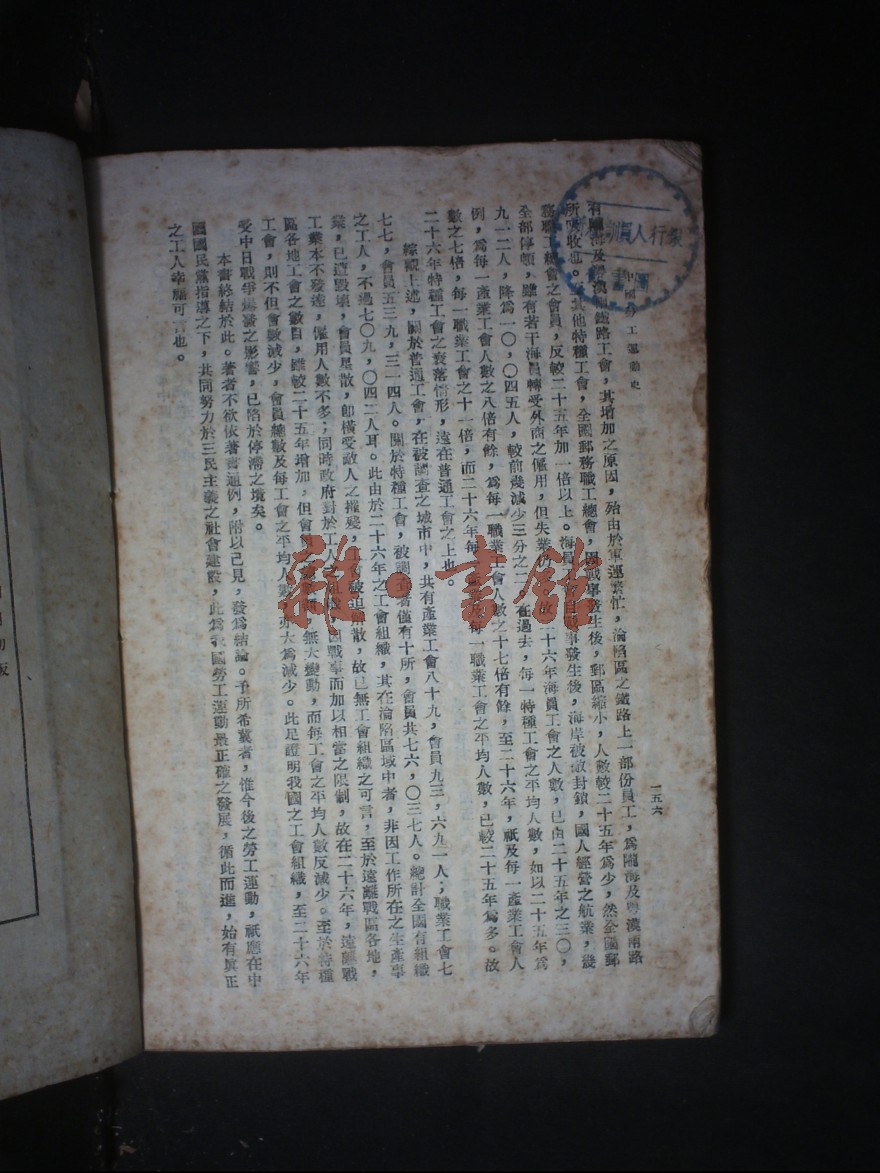 中國勞工運動史
一五六
有隴海及粵漢兩鐵路工會，其增加之原因，殆由於軍運繁忙，淪陷區之鐵路上一部份員工，為隴海及粵漢兩路
所吸收也。其他特種工會，全國郵務職工總會，因戰事發生後，郵區縮小，人數較二十五年為少，然全國郵
務職工總會之會員，反較二十五年加一倍以上。海員工會自戰事發生後，海岸被敵封鎖，國人經營之航業，幾
全部停頓，雖有若干海員轉受外商之僱用，但失業 故二十六年海員工會之人數，已由二十五年之三〇，
九一二人，降為一〇，〇四五人，較前幾減少三分之二 在過去，每一特種工會之平均人數，如以二十五年為
例，為每一產業工會人數之八倍有餘，為每一職業工會人數之十七倍有餘，至二十六年，祇及每一產業工會人
數之七倍，每一職業工會之十一倍，而二十六年每一 每一職業工會之平均人數，已較二十五年為多。故
二十六年特種工會之衰落情形，遠在普通工會之上也。
綜觀上述，關於普通工會，在被調查之城市中，共有產業工會八十九，會員九三，六九一人；職業工會七
七七，會員五三九，三一四人。關於特種工會，被調查者僅有十所，會員共七六，〇三七人。總計全國有組織
之工人，不過七〇九，〇四二人耳。此由於二十六年之工會組織，其在淪陷區域中者，非因工作所在之生產事
業，已遭毀壞，會員星散，卽橫受敵人之摧殘，工會被迫解散，故已無工會組織之可言，至於遠離戰區各地，
工業本不發達，僱用人數不多；同時政府對於工人之組織 因戰事而加以相當之限制，故在二十六年，遠離戰
區各地工會之數目，雖較二十五年增加，但會員 無大變動，而每工會之平均人數反減少。至於特種
工會，則不但會數減少，會員總數及每工會之平均人數，亦大為減少。此足證明我國之工會組織，至二十六年
受中日戰爭爆發之影響，已陷於停滯之境矣。
本書終結於此。著者不欲依著書通例，附以己見，發為結論。予所希冀者，惟今後之勞工運動，祇應在中
國國民黨指導之下，共同努力於三民主義之社會建設，此為我國勞工運動最正確之發展，循此而進，始有眞正
之工人幸福可言也。
雜·書館